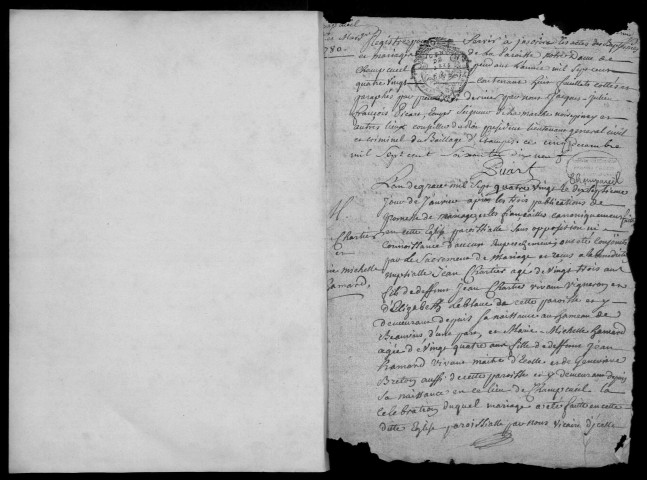 Registre pour servir à inscrire les actes de
et mariages de la paroisse de
Champcueil pendant l'année mil sept cent
quatre vingt contenant huit feuillets cottés et
paraphés par premier et dernier par nous Jacques Julien
François Picart Ecuyer Seigneur de
autres lieux conseiller du Roi president lieutenant general civil
et criminel du Bailliage d'Etampes ce cinq decembre
mil sept cent soixante dix neuf
Picart
Champcueil
L'an de grace mil sept quatre vingt le dix septieme
jour de Janvier après les trois publications de
promesse de mariage et les fiançailles canoniquement faites
en cette Eglise paroissialle sans opposition ni
connoissance d'aucun empeschement ont été conjoints
par le Sacrement de Mariage et reçus la benediction
nuptialle Jean Chartier agé de vingt trois ans
fils de deffunt Jean Chartier vivant vigneron et
d'Elizabeth Leblanc de cette paroisse et y
demeurant depuis sa naissance au hameau de
Beauvais d'une part, et Marie Michelle hamard
agée de vingt quatre ans fille de deffunt jean
hamard vivant maitre d'Ecolle et de Geneviève
Breton aussi de cette paroisse et y demeurant depuis
sa naissance en ce lieu de Champcueil la
celebration duquel mariage a été faite en cette
ditte Eglise paroissialle par nous vicaire d'icelle
M.
Chartier
et
michelle
hamard